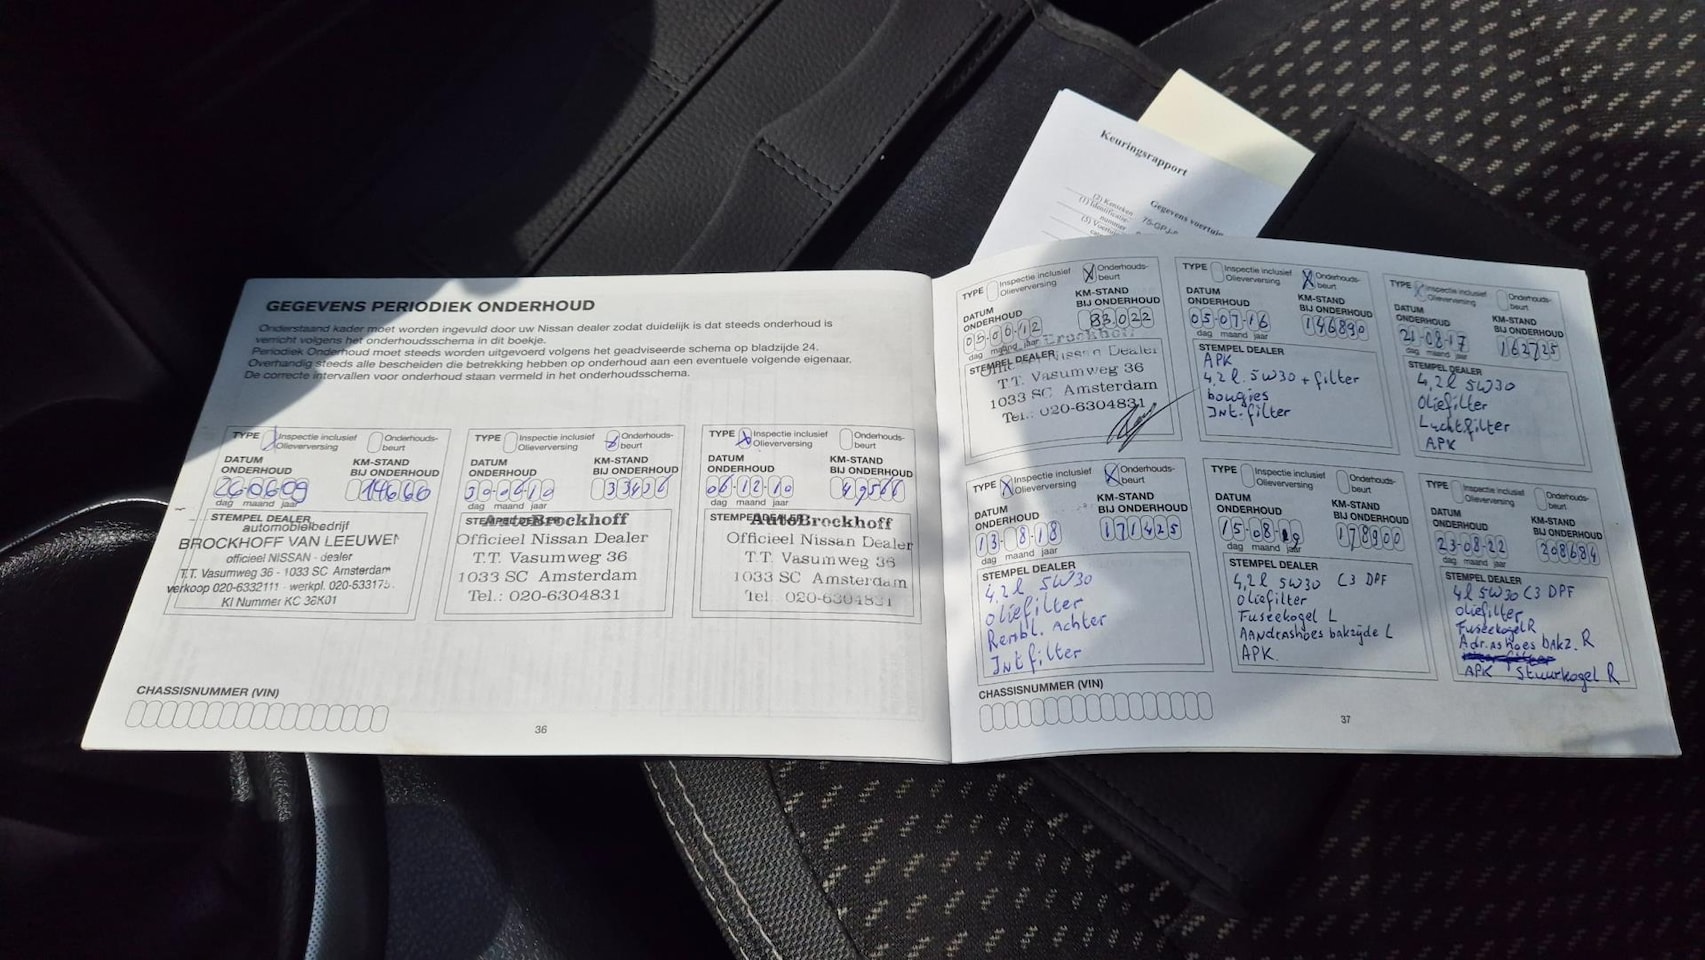 Keuringsrapport
Gegevens voertuig
(2) Kenteken
(1) Identificatie-
nummer
(3) Voertuig
GEGEVENS PERIODIEK ONDERHOUD
Onderstaand kader moet worden ingevuld door uw Nissan dealer zodat duidelijk is dat steeds onderhoud is
verricht volgens het onderhoudsschema in dit boekje.
Periodiek Onderhoud moet steeds worden uitgevoerd volgens het geadviseerde schema op bladzijde 24.
Overhandig steeds alle bescheiden die betrekking hebben op onderhoud aan een eventuele volgende eigenaar.
De correcte intervallen voor onderhoud staan vermeld in het onderhoudsschema.
TYPE Inspectie inclusief Olieverversing Onderhouds-beurt
DATUM ONDERHOUD KM-STAND BIJ ONDERHOUD
26-06-09 14660
dag maand jaar
STEMPEL DEALER
automobielbedrijf
BROCKHOFF VAN LEEUWEN
officieel NISSAN - dealer
T.T. Vasumweg 36 - 1033 SC Amsterdam
verkoop 020-6332111 - werkpl. 020-633175
KI Nummer KC 36K01
TYPE Inspectie inclusief Olieverversing Onderhouds-beurt
DATUM ONDERHOUD KM-STAND BIJ ONDERHOUD
dag maand jaar
STEMPEL DEALER
Auto Brockhoff
Officieel Nissan Dealer
T.T. Vasumweg 36
1033 SC Amsterdam
Tel.: 020-6304831
TYPE X Inspectie inclusief Olieverversing Onderhouds-beurt
DATUM ONDERHOUD KM-STAND BIJ ONDERHOUD
06-12-10 49566
dag maand jaar
STEMPEL DEALER
Auto Brockhoff
Officieel Nissan Dealer
T.T. Vasumweg 36
1033 SC Amsterdam
Tel.: 020-6304831
CHASSISNUMMER (VIN)
36
TYPE Inspectie inclusief Olieverversing X Onderhouds-beurt
DATUM ONDERHOUD KM-STAND BIJ ONDERHOUD
05-06-12 83022
dag maand jaar
STEMPEL DEALER
Brockhoff
Nissan Dealer
T.T. Vasumweg 36
1033 SC Amsterdam
Tel.: 020-6304831
TYPE Inspectie inclusief Olieverversing X Onderhouds-beurt
DATUM ONDERHOUD KM-STAND BIJ ONDERHOUD
05-07-16 146890
dag maand jaar
STEMPEL DEALER
APK
4,2 l. 5W30 + filter
bougies
Int. filter
TYPE X Inspectie inclusief Olieverversing Onderhouds-beurt
DATUM ONDERHOUD KM-STAND BIJ ONDERHOUD
21-08-17 162725
dag maand jaar
STEMPEL DEALER
4,2 l 5W30
Oliefilter
Luchtfilter
APK
TYPE X Inspectie inclusief Olieverversing X Onderhouds-beurt
DATUM ONDERHOUD KM-STAND BIJ ONDERHOUD
13-8-18 171425
dag maand jaar
STEMPEL DEALER
4,2 l 5W30
oliefilter
Rembl. Achter
Int filter
TYPE Inspectie inclusief Olieverversing Onderhouds-beurt
DATUM ONDERHOUD KM-STAND BIJ ONDERHOUD
15-08-19 178900
dag maand jaar
STEMPEL DEALER
4,2 l 5W30 C3 DPF
oliefilter
Fuseekogel L
Aandrashoes bakzijde L
APK.
TYPE Inspectie inclusief Olieverversing Onderhouds-beurt
DATUM ONDERHOUD KM-STAND BIJ ONDERHOUD
23-08-22 208684
dag maand jaar
STEMPEL DEALER
4 l 5W30 C3 DPF
oliefilter
Fuseekogel R
Adr.ashoes bakz. R
APK Stuurkogel R
CHASSISNUMMER (VIN)
37